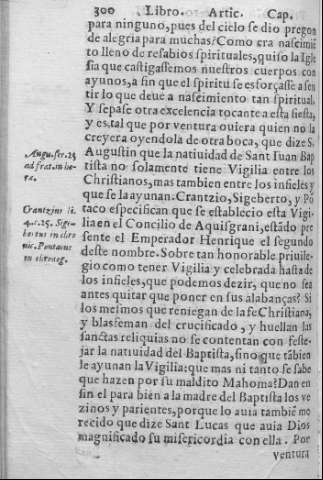 300 Libro. Artic. Cap.
para ninguno, pues del cielo se dio pregon
de alegria para muchas? Como era nascimiē
to lleno de resabios spirituales, quiso la Igle
sia que castigassemos nuestros cuerpos con
ayunos, a fin que el spiritu se esforçasse a sen
tir lo que deue a nascimiento tan spiritual.
Y sepase otra excelencia tocante a esta fiesta,
y es, tal que por ventura ouiera quien no la
creyera oyendola de otra boca, que dize S.
Augustin que la natiuidad de Sant Iuan Bap
tista no solamente tiene Vigilia entre los
Christianos, mas tambien entre los infieles y
que se la ayunan. Crantzio, Sigeberto, y Pō
taco especifican que se establecio esta Vigi
lia en el Concilio de Aquisgrani, estādo pre
sente el Emperador Henrique el segundo
deste nombre. Sobre tan honorable priuile-
gio como tener Vigilia y celebrada hasta de
los infieles, que podemos dezir, que no sea
antes quitar que poner en sus alabanças? Si
los mesmos que reniegan de la fe Christiana,
y blasfeman del crucificado, y huellan las
sanctas reliquias no se contentan con feste-
jar la natiuidad del Baptista, sino que tābien
le ayunan la Vigilia: que mas ni tanto se sabe
que hazen por su maldito Mahoma? Dan en
fin el para bien a la madre del Baptista los ve
zinos y parientes, porque lo auia tambiē me
recido que dize Sant Lucas que auia Dios
magnificado su misericordia con ella. Por
ventura
Augu. ser. 23
ad frat. in he-
re.
Crantzius li.
4. c. 25. Sige-
bertus in chro
nic. Pontacus
in chronog.